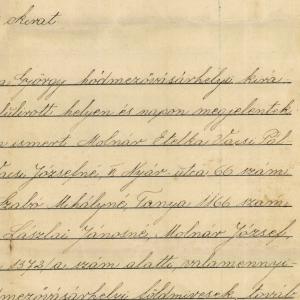 kirat
György hódmezővásárhelyi kirá
lülirott helyen és napon megjelentek
ismert Molnár Etelka Vácsi Pál
Vácsi Józsefné, II Nyár utca 66 szám
Szabó Mihályné Tanya 1166 szám
László Jánosné, Molnár József
1372/a szám alatti, valamennyi-
mezővásárhelyi földmivesek továb